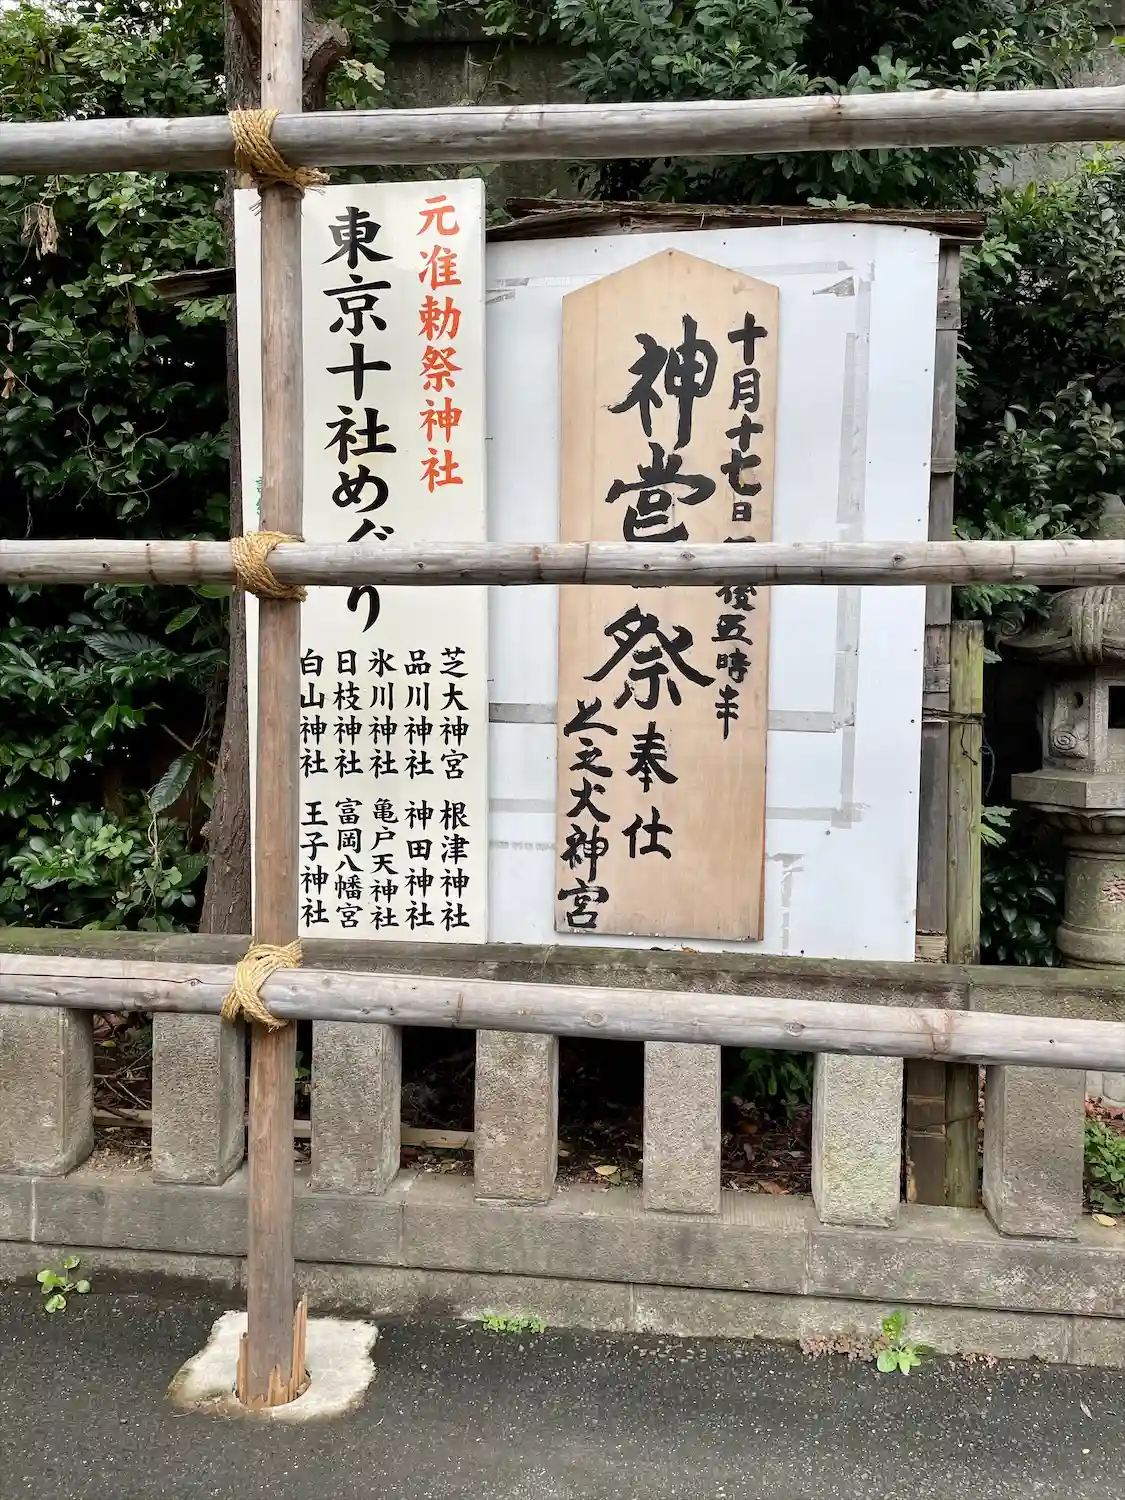 元准勅祭神社
東京十社めぐり
芝大神宮 根津神社
品川神社 神田神社
氷川神社 亀戸天神社
日枝神社 富岡八幡宮
白山神社 王子神社
十月十七日 後五時半
神嘗祭奉仕
大神宮